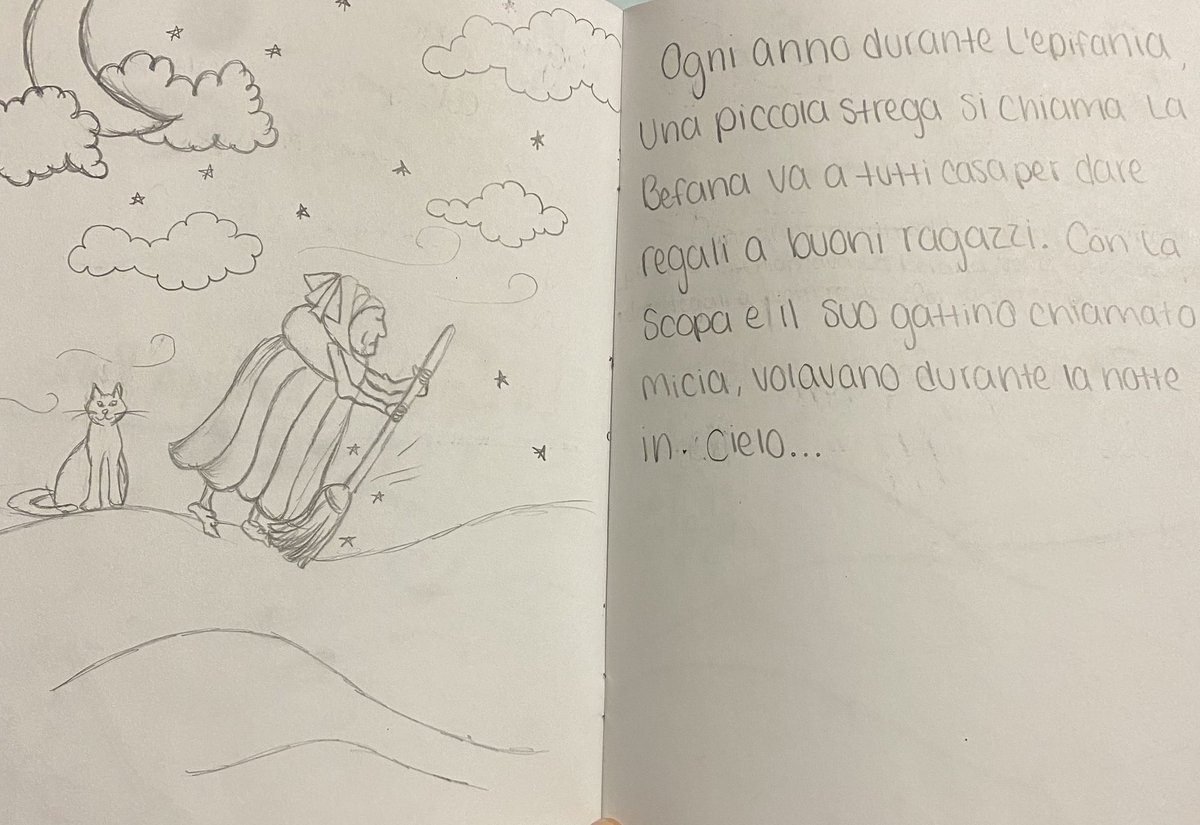 Ogni anno durante l'epifania,
una piccola strega si chiama la
Befana va a tutti casa per dare
regali a buoni ragazzi. Con la
scopa e il suo gattino chiamato
micia, volavano durante la notte
in. cielo...